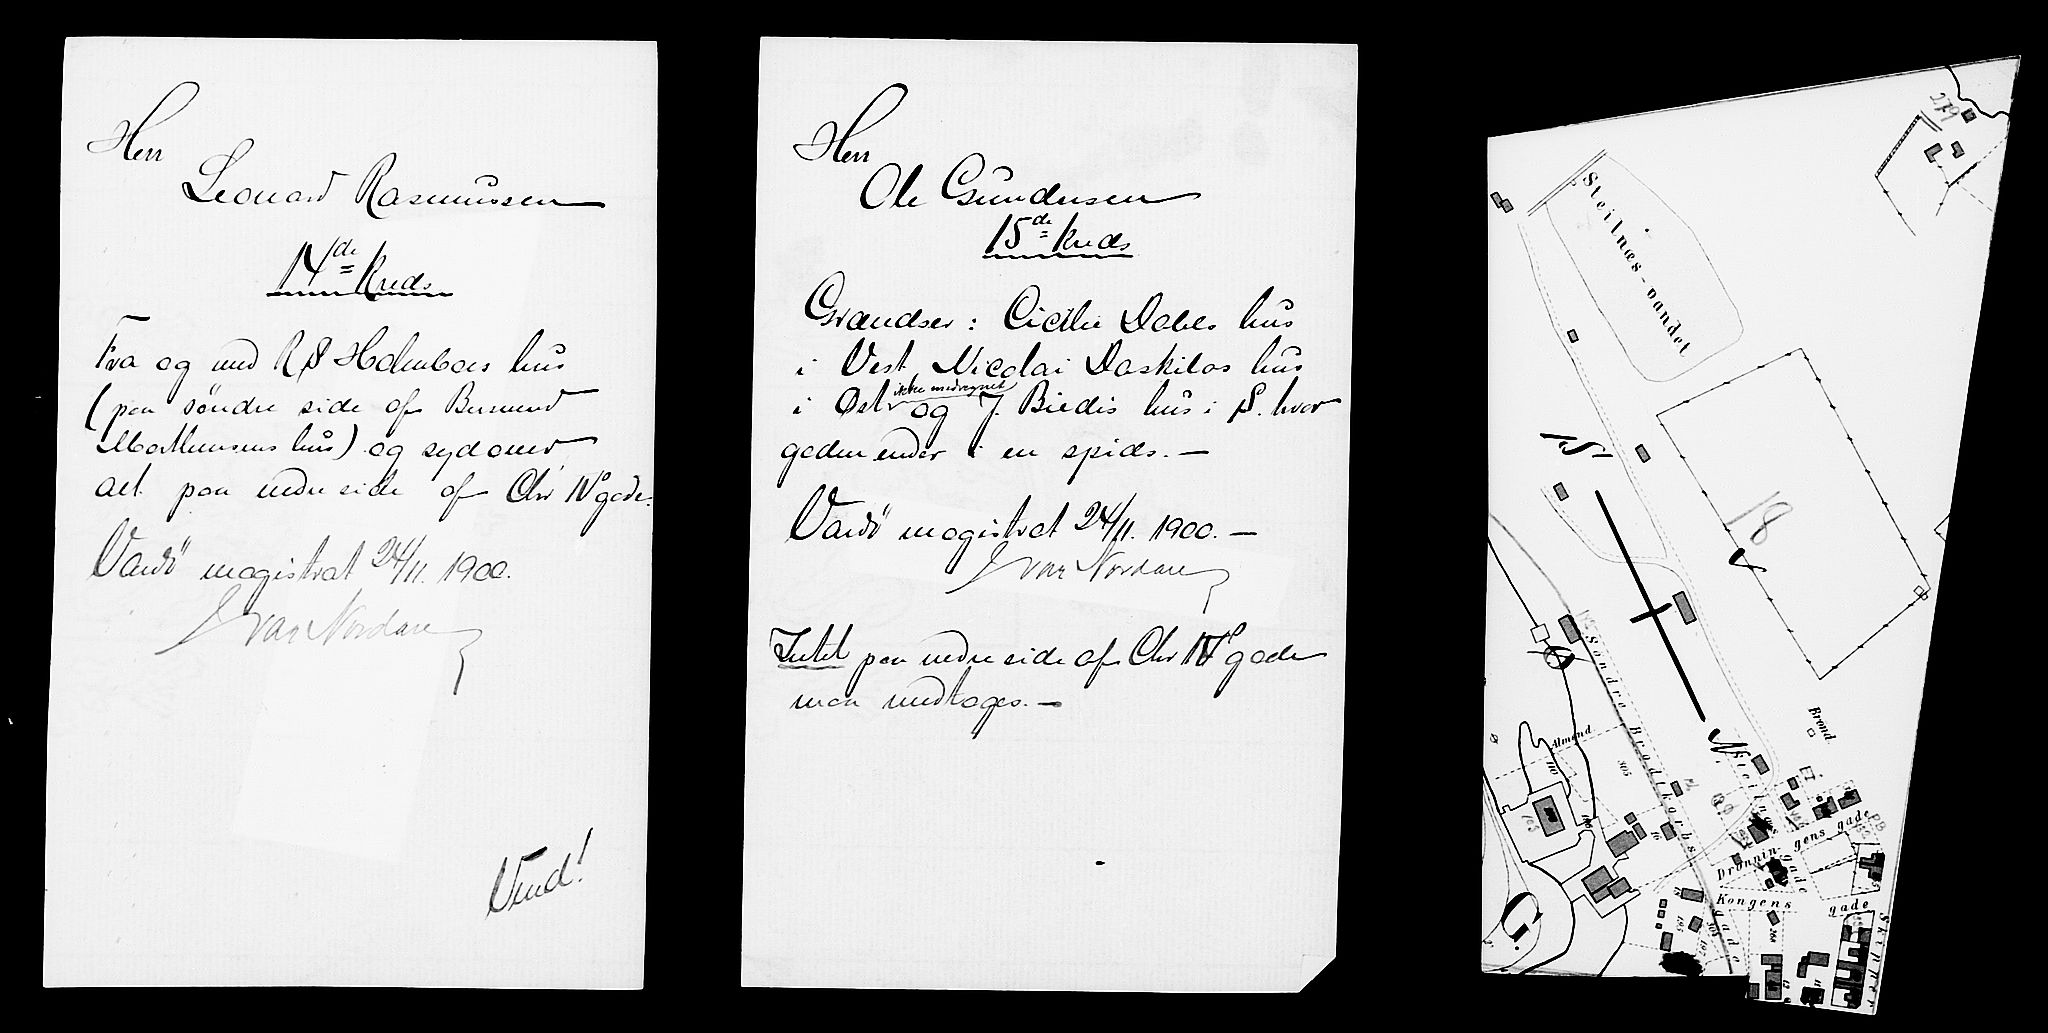 Herr
Leonard Rasmussen
14de Kreds
Fra og med R S Holmboes hus
(paa söndre side af Bernard
Morthensens hus) og sydover,
alt paa nedre side af Chr IVs gade.
Vardö magistrat 24/11. 1900.
Ivar Nordare
Vend!
Herr
Ole Gundersen
15de Kreds
Grændser: Cicilie Dahls hus
i Vest, Nicolai Daskilas hus
ikke medregnet
i Øst og J. Biedis hus i S. hvor
gaden ender i en spids. —
Vardö magistrat 24/11. 1900. —
Ivar Nordare
Intet paa nedre side af Chr IVs gade
maa medtages. —
279
Steilnæs-vandet
S
18
Søndre Brodtkorbs gade
Almend
110
305
Brønd
N.
Steilnæs gade
103
Dronningens gade
Kongens gade
G.
195
305
268
Skipper